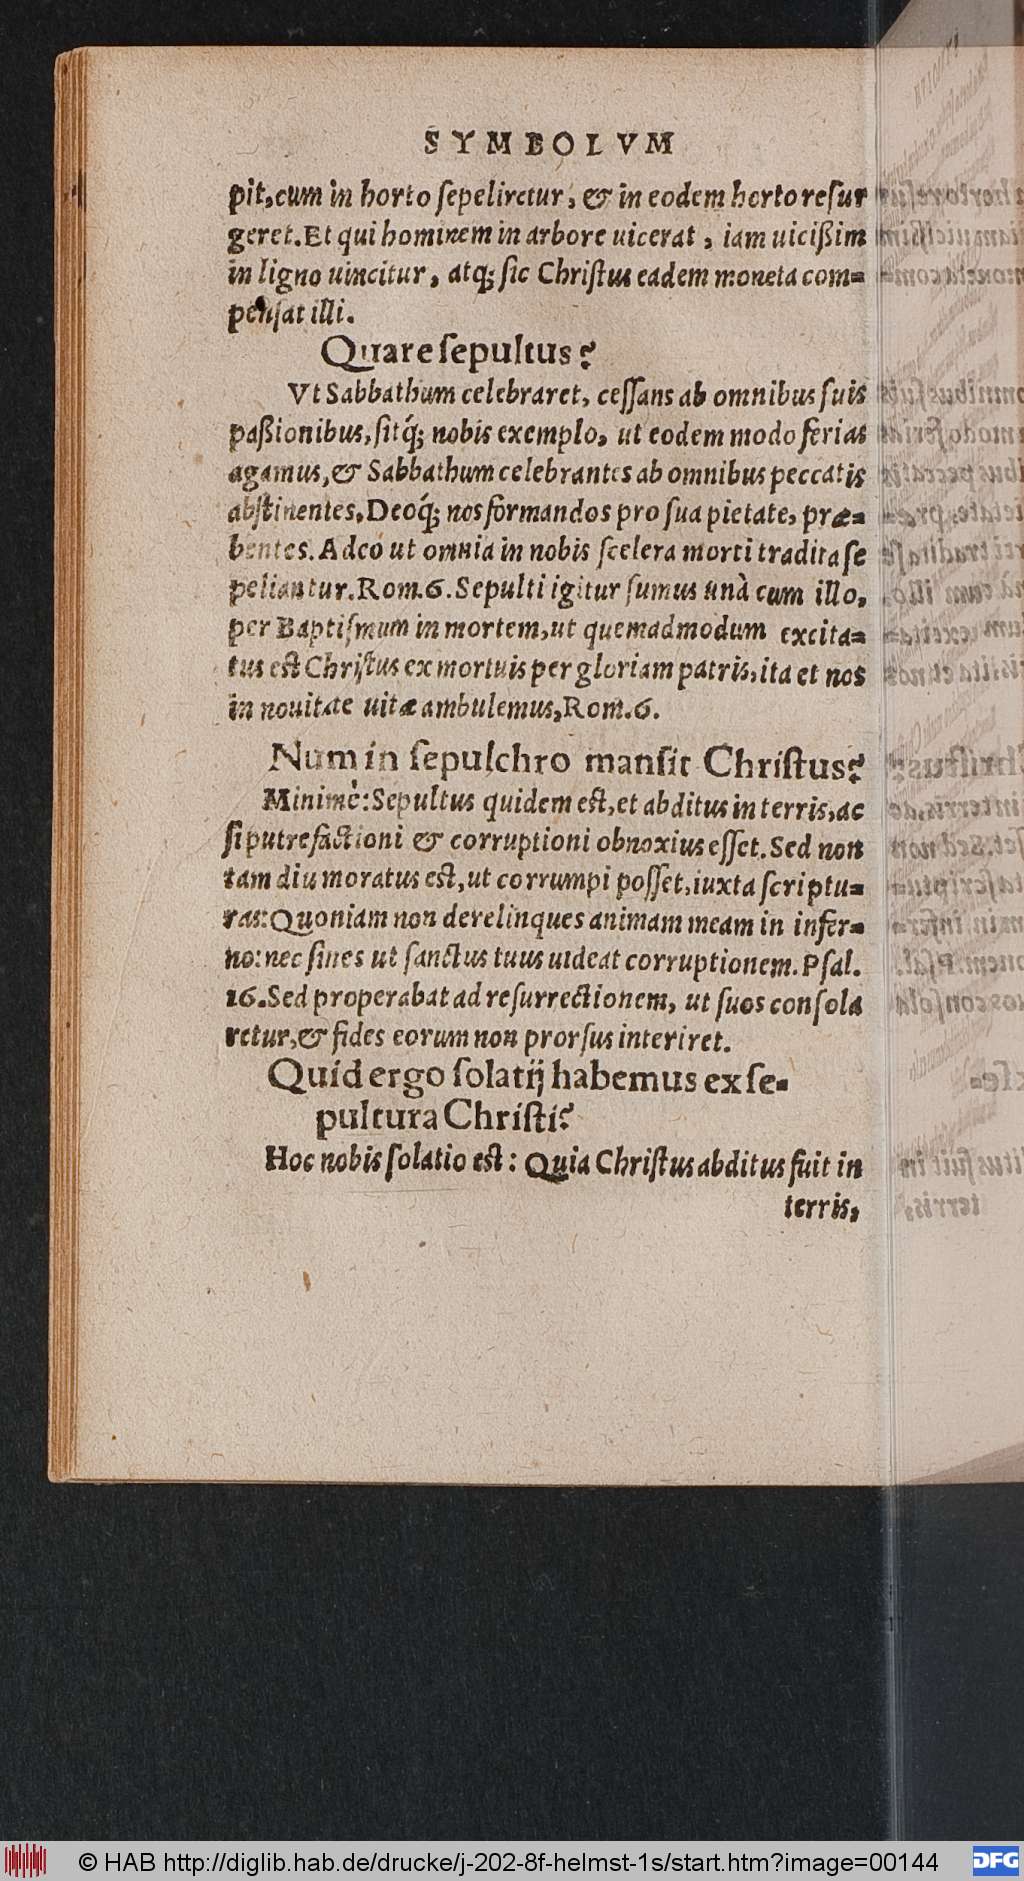 SYMBOLVM
pit, cum in horto sepeliretur, & in eodem horto resur
geret. Et qui hominem in arbore uicerat, iam uicißim
in ligno uincitur, atq; sic Christus eadem moneta com=
pensat illi.
Quare sepultus?
Vt Sabbathum celebraret, cessans ab omnibus suis
paßionibus, sitq́; nobis exemplo, ut eodem modo ferias
agamus, & Sabbathum celebrantes ab omnibus peccatis
abstinentes, Deoq́; nos formandos pro sua pietate, præ=
bentes. Adeo ut omnia in nobis scelera morti tradita se
peliantur. Rom. 6. Sepulti igitur sumus unà cum illo,
per Baptismum in mortem, ut quemadmodum excita=
tus est Christus ex mortuis per gloriam patris, ita et nos
in nouitate uitæ ambulemus, Rom. 6.
Num in sepulchro mansit Christus?
Minimè: Sepultus quidem est, et abditus in terris, ac
si putrefactioni & corruptioni obnoxius esset. Sed non
tam diu moratus est, ut corrumpi posset, iuxta scriptu=
ras: Quoniam non derelinques animam meam in infer=
no: nec sines ut sanctus tuus uideat corruptionem. Psal.
16. Sed properabat ad resurrectionem, ut suos consola
retur, & fides eorum non prorsus interiret.
Quid ergo solatij habemus ex se=
pultura Christi?
Hoc nobis solatio est: Quia Christus abditus fuit in
terris,
© HAB http://diglib.hab.de/drucke/j-202-8f-helmst-1s/start.htm?image=00144
DFG